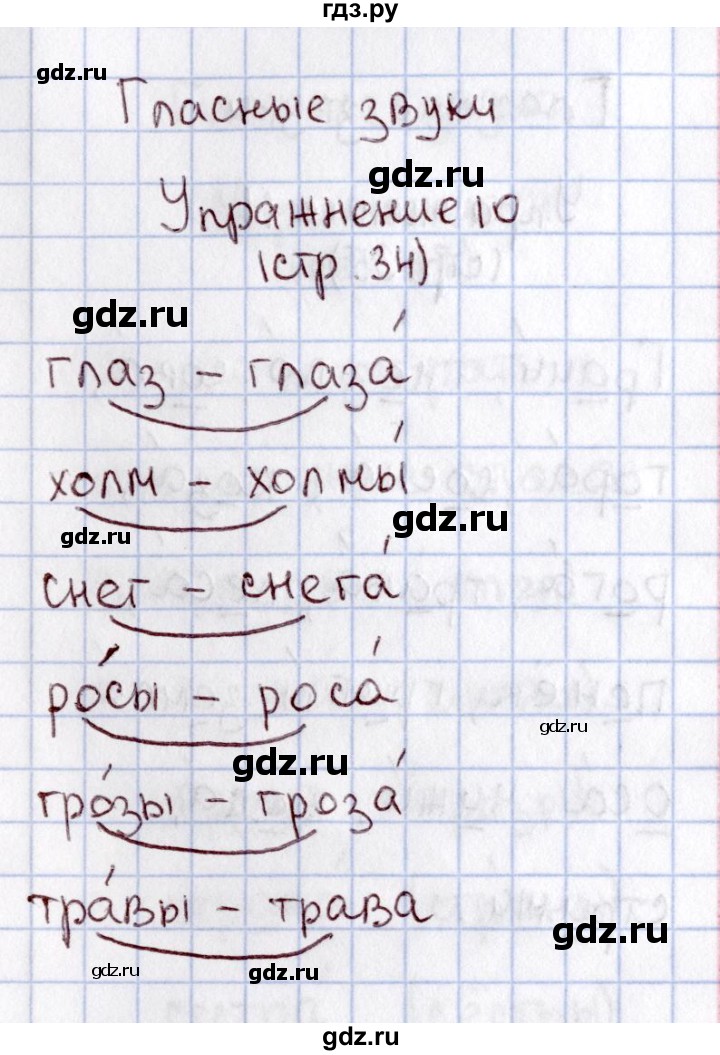 гдз.ру
gdz.ru
Гласные звуки
gdz.ru
Упражнение 10
(стр. 34)
gdz.ru
глаз – глаза́
холм – холмы́
gdz.ru
gdz.ru
снег – снега́
ро́сы – роса́
gdz.ru
gdz.ru
гро́зы – гроза́
тра́вы – трава
gdz.ru
gdz.ru
gdz.ru
gdz.ru